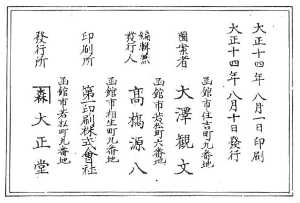 大正十四年八月一日印刷
大正十四年八月十日發行
函館市住吉町九番地
圖案者 大澤觀文
函館市若松町六番地
編輯兼發行人 高橋源八
函館市相生町九番地
印刷所 第一印刷株式會社
函館市若松町九番地
發行所 森大正堂